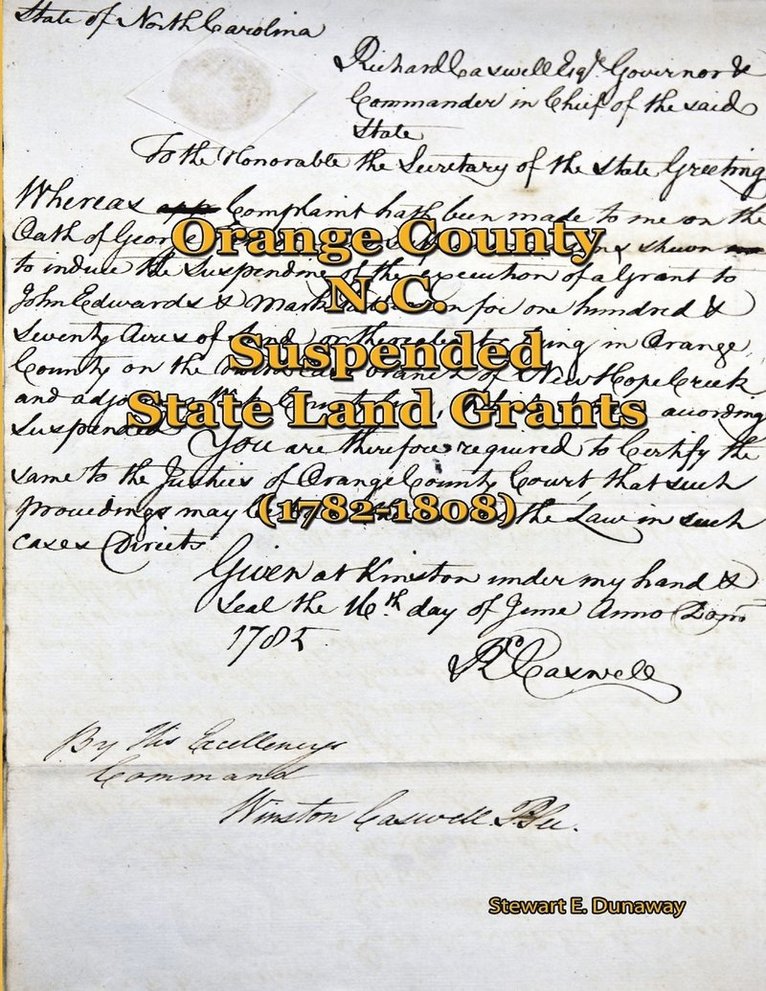 State of North Carolina
Richard Caswell Esqr. Governor &
Commander in Chief of the said
State
To the Honorable the Secretary of the State Greeting
Whereas Complaint hath been made to me on the
Oath of George shewn
to induce the Suspending of the execution of a Grant to
John Edwards & Mark for one hundred &
Seventy Acres of Land or thereabouts lying in Orange
County on the branch of New Hope Creek
and adjoining acording
Suspended You are therefore required to Certify the
same to the Justices of Orange County Court, that such
proceedings may the Law in such
cases Directs
Given at Kinston under my hand &
Seal the 16th day of June Anno Dom
1785
Rd Caswell
By His Excellencys
Command
Winston Caswell P. Sec.
Orange County
N.C.
Suspended
State Land Grants
(1782-1808)
Stewart E. Dunaway